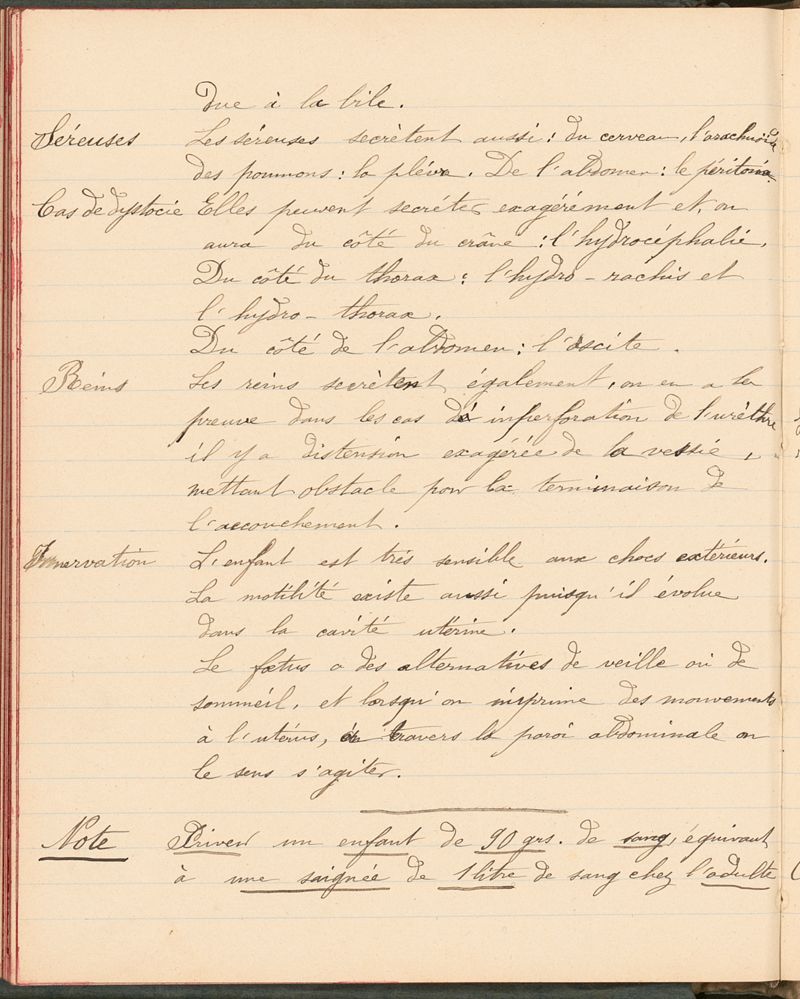 due à la bile.
Séreuses Les séreuses secrètent aussi : du cerveau, l'arachnoïde
des poumons : la plévre. De l'abdomen : le péritoine.
Cas de dystocie Elles peuvent secréter exagérément et, on
aura du côté du crâne : l'hydrocéphalie,
Du côté du thorax : l'hydro-rachis et
l'hydro-thorax.
Du côté de l'abdomen : l'ascite.
Reins Les reins secrètent également, on en a la
preuve dans les cas de imperforation de l'urèthre
il y a distension exagérée de la vessie,
mettant obstacle pour la terminaison de
l'accouchement.
Innervation L'enfant est très sensible aux chocs extérieurs.
La motilité existe aussi puisqu'il évolue
dans la cavité utérine.
Le fœtus a des alternatives de veille ou de
sommeil, et lorsqu'on imprime des mouvements
à l'utérus, à travers la paroi abdominale on
le sens s'agiter.
Note Priver un enfant de 90 grs. de sang, équivaut
à une saignée de 1 litre de sang chez l'adulte